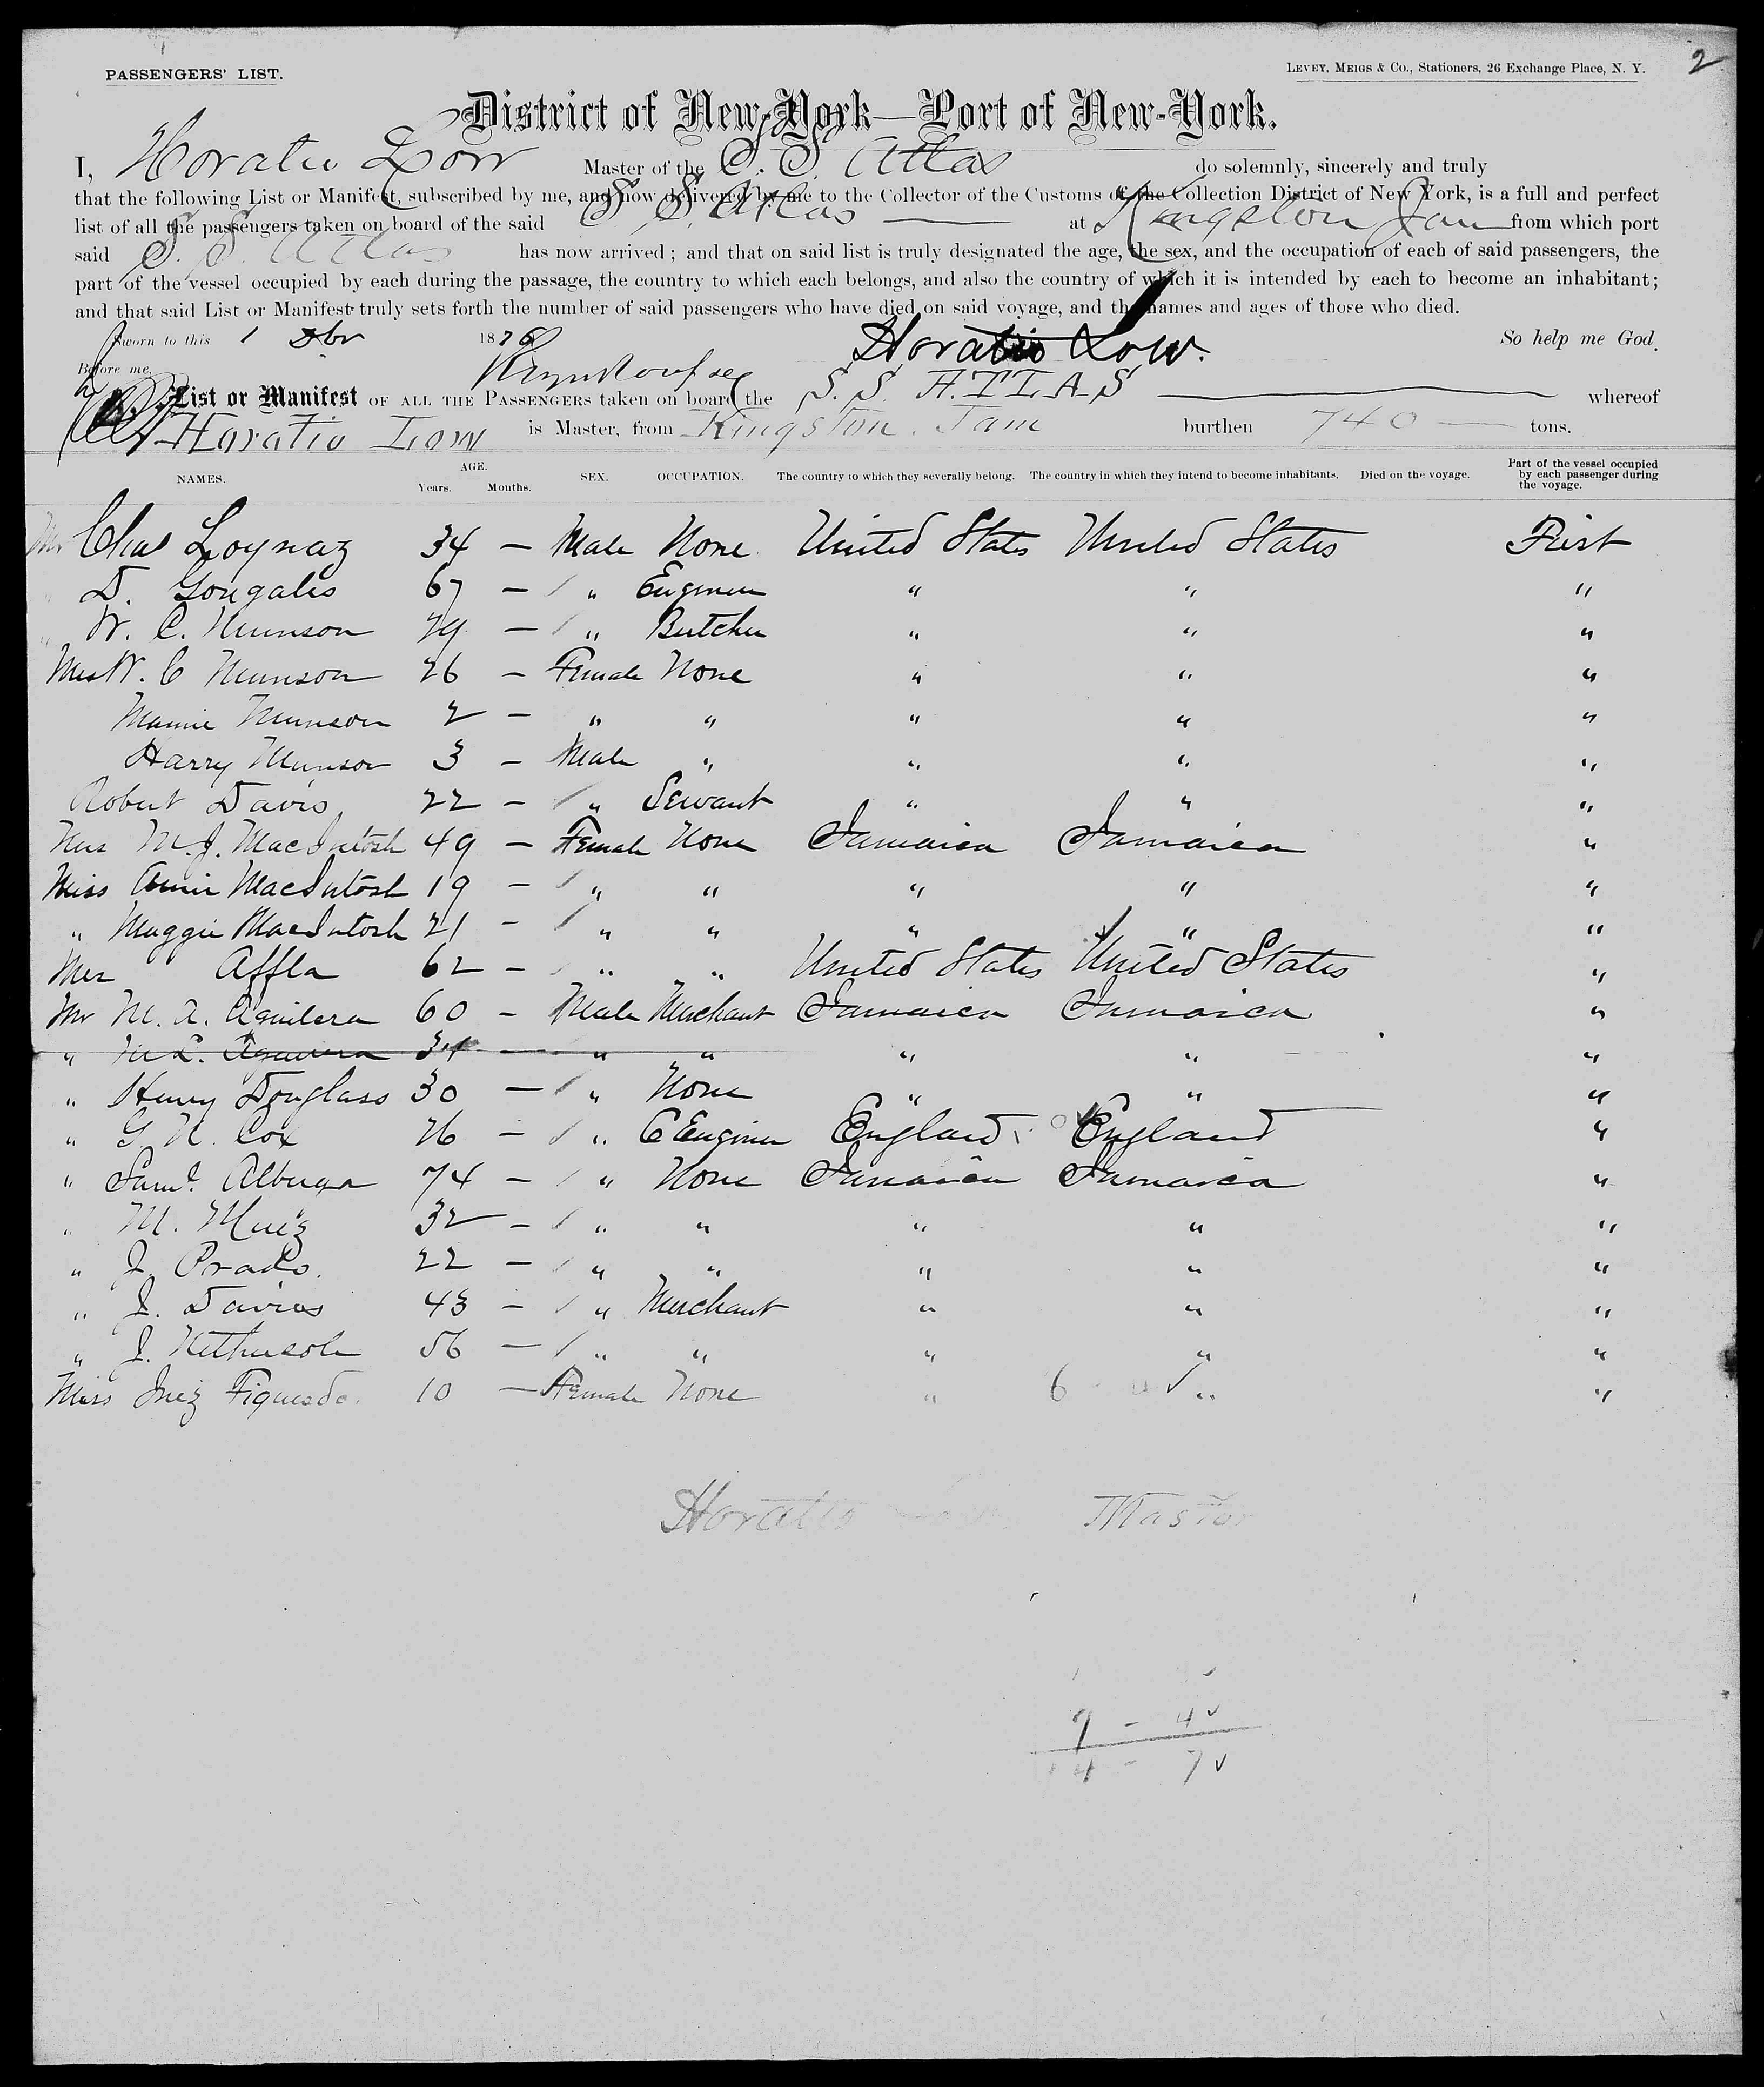 2
PASSENGERS' LIST.
LEVEY, MEIGS & CO., Stationers, 26 Exchange Place, N. Y.
District of New-York—Port of New-York.
I, Horatio Low Master of the S. S. Atlas do solemnly, sincerely and truly
that the following List or Manifest, subscribed by me, and now delivered by me to the Collector of the Customs of the Collection District of New York, is a full and perfect
list of all the passengers taken on board of the said S. S. Atlas at Kingston Jam from which port
said S. S. Atlas has now arrived; and that on said list is truly designated the age, the sex, and the occupation of each of said passengers, the
part of the vessel occupied by each during the passage, the country to which each belongs, and also the country of which it is intended by each to become an inhabitant;
and that said List or Manifest truly sets forth the number of said passengers who have died on said voyage, and the names and ages of those who died.
Sworn to this 1 Dbr 1876 Horatio Low. So help me God.
Before me,
List or Manifest OF ALL THE PASSENGERS taken on board the S. S. ATLAS whereof
Horatio Low is Master, from Kingston. Jam burthen 740 tons.
NAMES. AGE. Years. Months. SEX. OCCUPATION. The country to which they severally belong. The country in which they intend to become inhabitants. Died on the voyage. Part of the vessel occupied by each passenger during the voyage.
Mr Chas Loynaz 34 — Male None United States United States First
" D. Gonzales 67 — " Engineer " " "
" W. C. Munson 29 — " Butcher " " "
Mrs W. C Munson 26 — Female None " " "
Mamie Munson 2 — " " " " "
Harry Munson 3 — Male " " " "
Robert Davis 22 — " Servant " " "
Mrs M. J. MacIntosh 49 — Female None Jamaica Jamaica "
Miss Annie MacIntosh 19 — " " " " "
" Maggie MacIntosh 21 — " " " " "
Mrs Affla 62 — " " United States United States "
Mr M. A. Aguilera 60 — Male Merchant Jamaica Jamaica "
" Aguilera 34 — " " " " "
" Henry Douglass 30 — " None " " "
" G. N. Cox 26 — " C Engineer England England "
" Saml. Alberga 24 — " None Jamaica Jamaica "
" M. Muiz 32 — " " " " "
" J. Prado. 22 — " " " " "
" J. Davies 43 — " Merchant " " "
" J. Nethersole 56 — " " " " "
Miss Inez Figueredo. 10 — Female None " 6 " "
Horatio Master
9 - 4 √
14 - 7 √